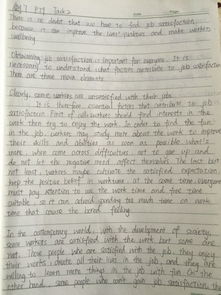 P27 Task 2
There is no doubt that we have to find job satisfaction,
because it can improve the workers and make workers
wellbeing
Obtaining job satisfaction is important for everyone. It is
necessary to understand what factors contribute to job satisfaction
There are three main elements
Clearly, some workers are unsatisfied with their jobs.
It is therefore essential factors that contribute to job
satisfaction. First of all, workers should find interests in the
work then try to enjoy the work. In order to find the fun
in the job, workers may study more about the work to improve
their skills and abilities as soon as possible. What is
more, when come across difficulties, not to use up and
do not let the negative mood affect themselves. The last but
not least, workers maybe cultivate the satisfied expectation
keep the positive belief in worktime. at the same time, everyone
must pay attention to use the work time and free time
suitable, so it can avoid spending too much time on work
time that cause the tired feeling
In the contemporary world, with the development of society,
some workers are satisfied with the work but some are
not. Those people who are satisfied with the job, they enjoy
their works, devote all their lives in the job, and they are
willing to learn more things in the job with fun. On the
other hand, some people who can't gain job satisfaction